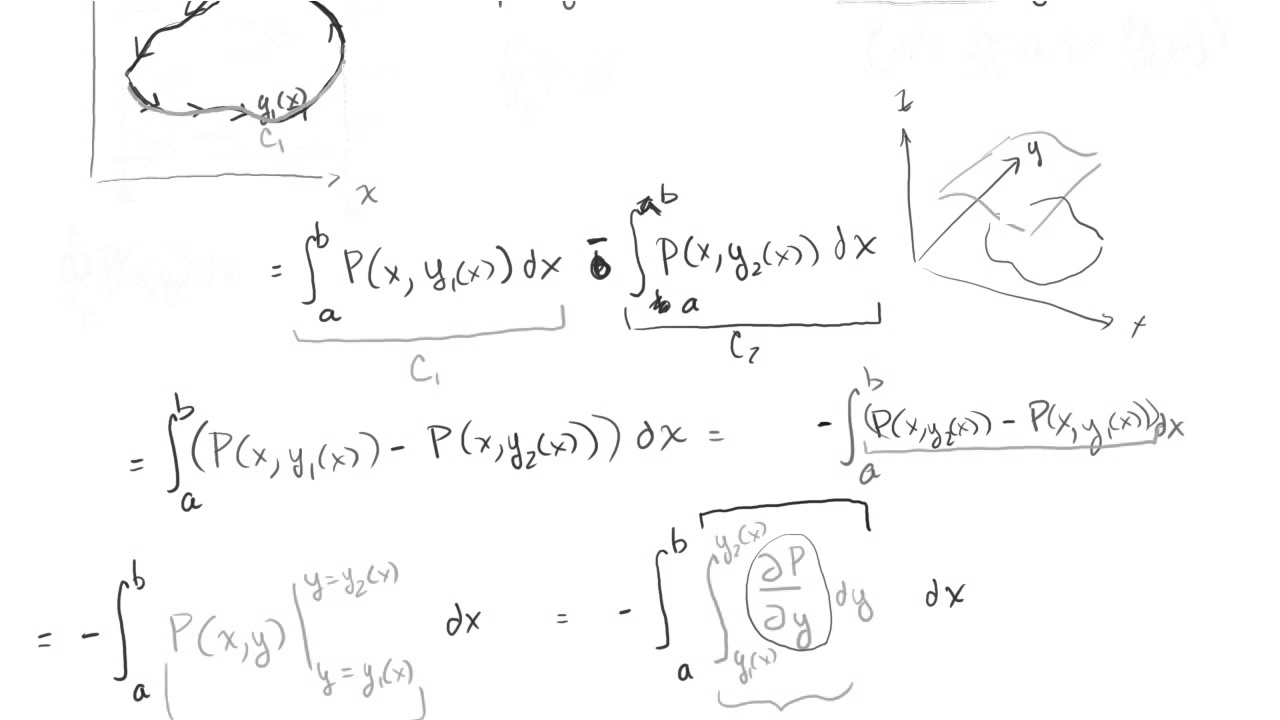 y₁(x)
C₁
x
z
y
x
= ∫ₐᵇ P(x, y₁(x)) dx - ∫ₐᵇ P(x, y₂(x)) dx
C₁ C₂
= ∫ₐᵇ (P(x, y₁(x)) - P(x, y₂(x))) dx = - ∫ₐᵇ (P(x, y₂(x)) - P(x, y₁(x))) dx
= - ∫ₐᵇ P(x,y) |_{y = y₁(x)}^{y = y₂(x)} dx = - ∫ₐᵇ ∫_{y₁(x)}^{y₂(x)} ∂P/∂y dy dx